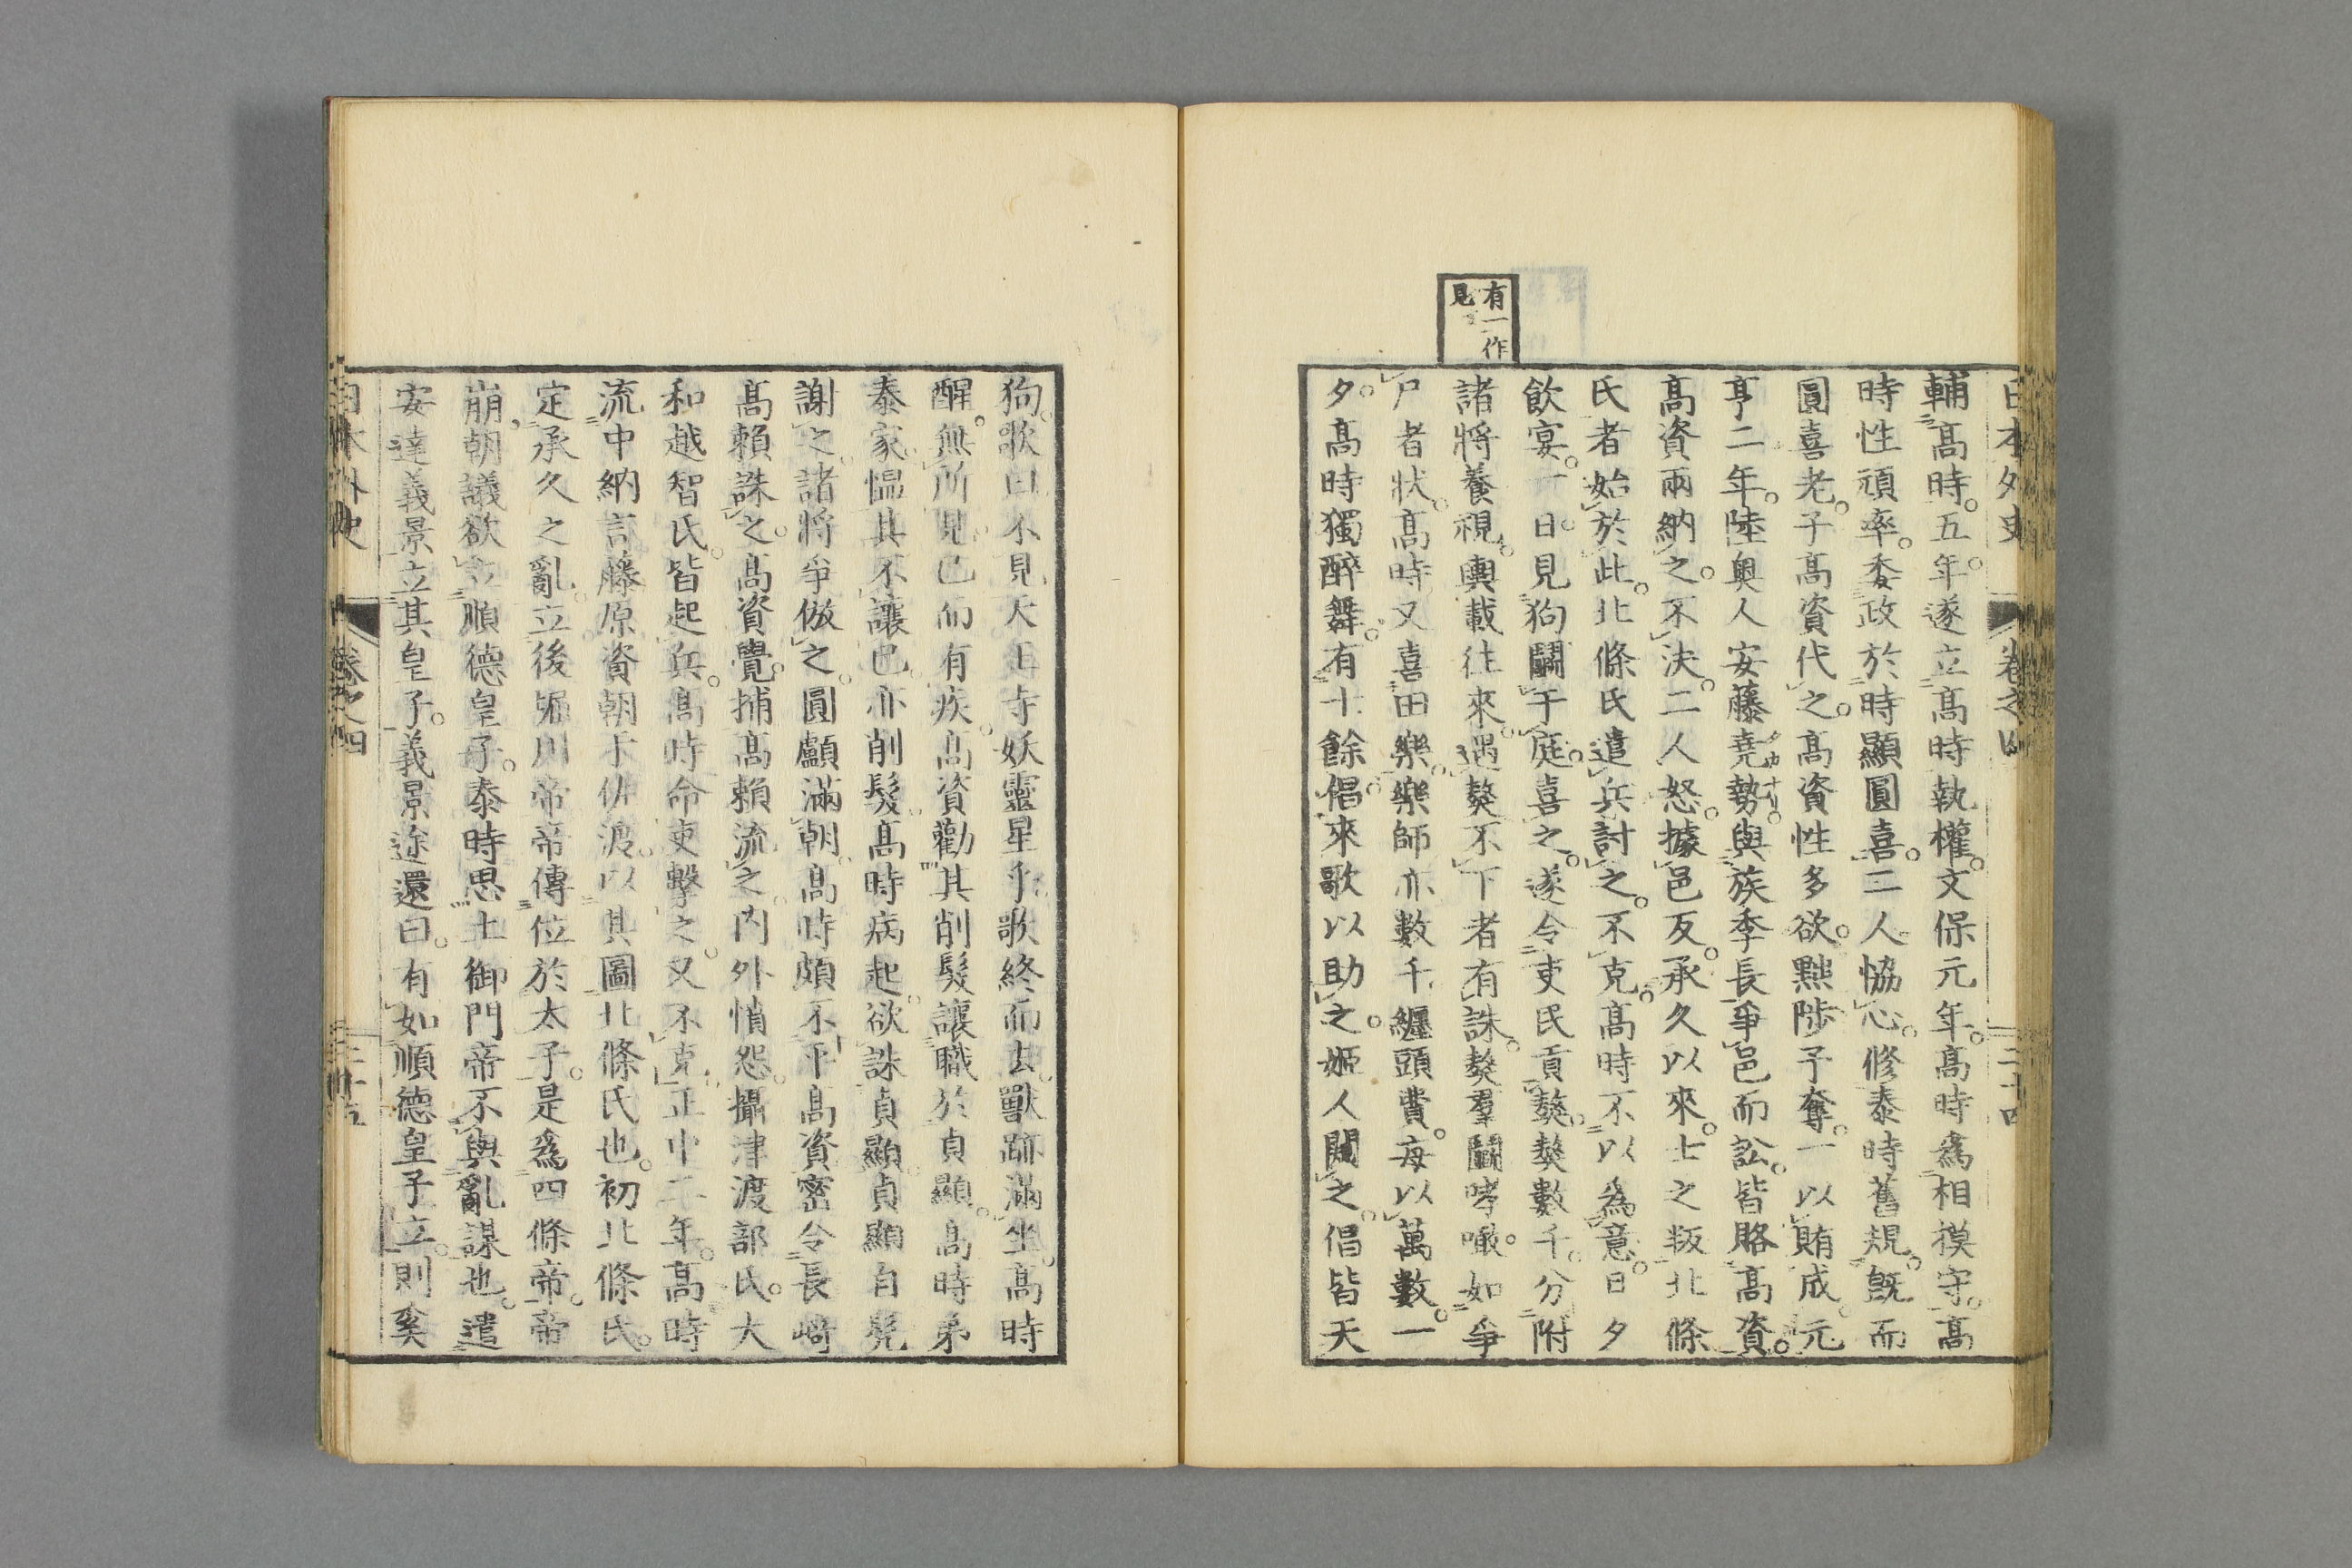 日本外史 卷之四 二十四
輔高時。五年。遂立高時執權。文保元年。高時爲相摸守。高
時性頑率。委政於時顯圓喜。二人恊心。修泰時舊規。既而
圓喜老。子高資代之。高資性多欲。黜陟予奪。一以賄成。元
亨二年。陸奥人安藤堯勢。與族季長爭邑而訟。皆賂高資。
高資兩納之。不決。二人怒。據邑反。承久以來。士之叛北條
氏者始於此。北條氏遣兵討之。不克。高時不以爲意。日夕
飲宴。一日。見狗鬬于庭。喜之。遂令吏民貢獒。獒數千。分附
諸將養視。輿載往來。遇獒不下者有誅。獒羣鬬哮噉。如爭
尸者狀。高時又喜田樂。樂師亦數千。纏頭費。毎以萬數。一
夕。高時獨醉舞。有十餘倡。來歌以助之。姬人闖之。倡皆天
有一作
見
狗。歌曰。不見天王寺妖靈星乎。歌終而去。獸跡滿坐。高時
醒。無所見。已而有疾。高資勸其削髮讓職於貞顯。高時弟
泰家慍其不讓已。亦削髮。高時病起。欲誅貞顯。貞顯自髡
謝之。諸將爭倣之。圓顱滿朝。高時頗不平高資。密令長崎
高賴誅之。高資覺。捕高賴流之。内外憤怨。攝津渡部氏。大
和越智氏。皆起兵。高時命吏擊之。又不克。正中二年。高時
流中納言藤原資朝于佐渡。以其圖北條氏也。初北條氏。
定承久之亂。立後堀川帝。帝傳位於太子。是爲四條帝。帝
崩。朝議欲立順德皇子。泰時思土御門帝不與亂謀也。遣
安達義景立其皇子。義景途還曰。有如順德皇子立。則奚
日本外史 卷之四 二十五